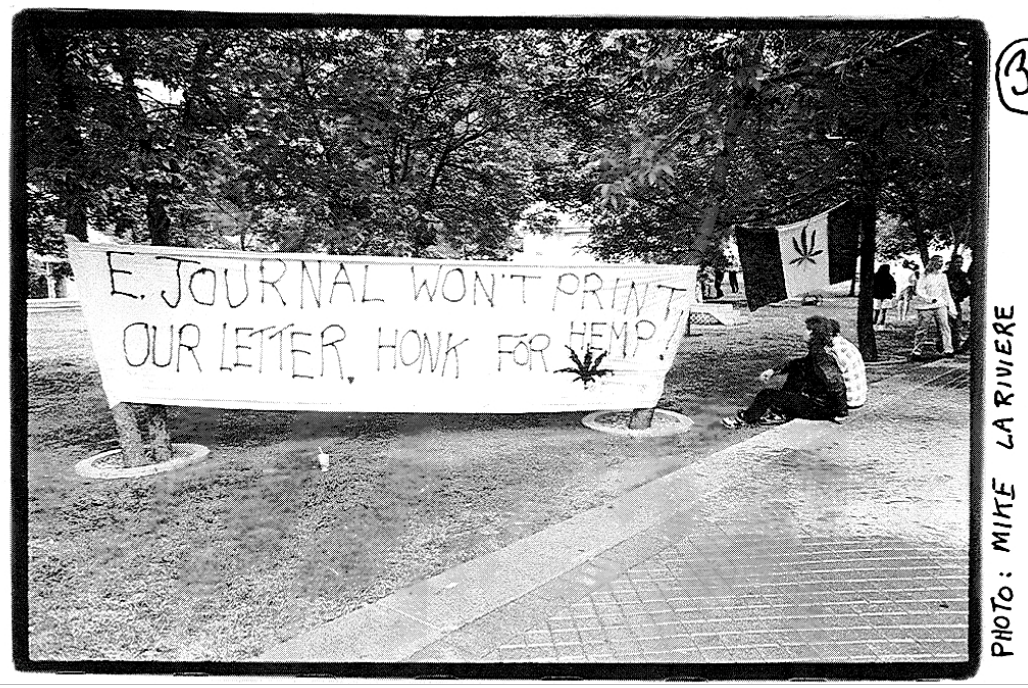 E. JOURNAL WON'T PRINT
OUR LETTER. HONK FOR HEMP!
3
PHOTO: MIKE LA RIVIERE